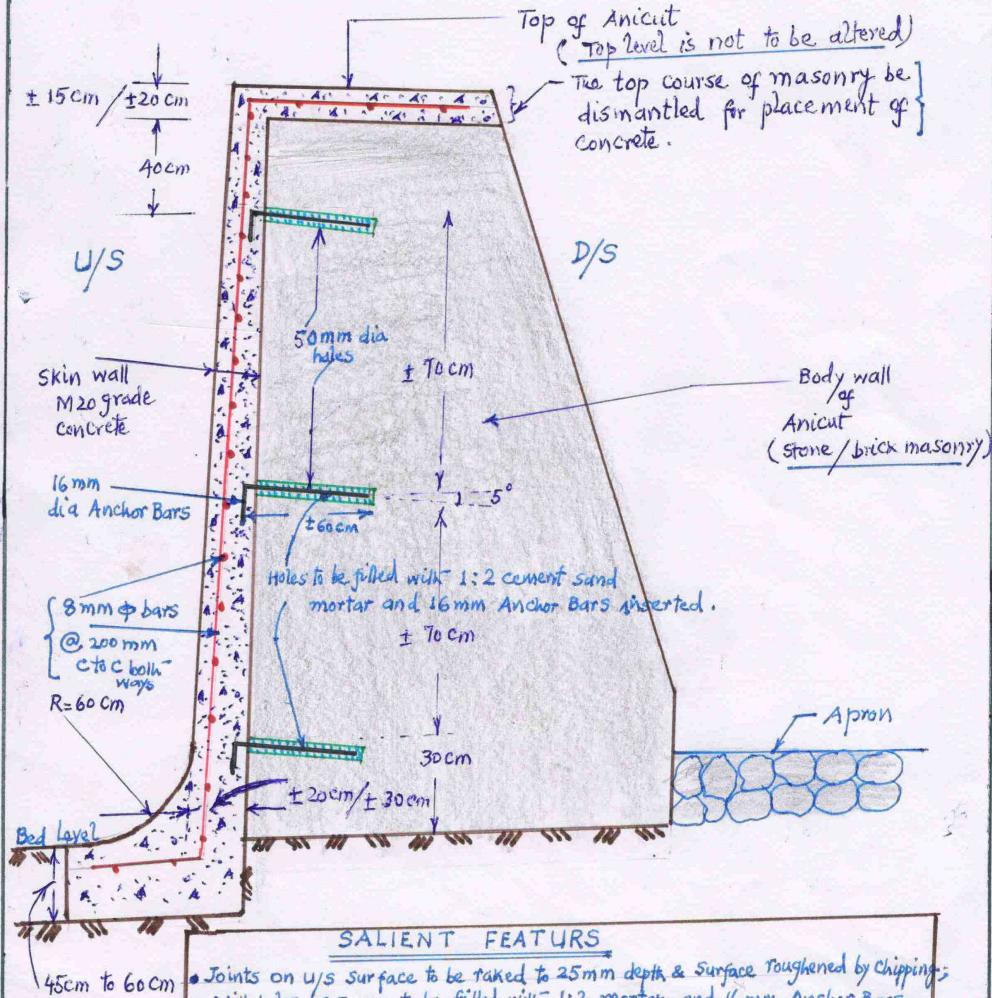 Top of Anicut
(Top level is not to be altered)
The top course of masonry be
dismantled for placement of
concrete.
± 15cm / ±20cm
40cm
U/S
D/S
50mm dia
holes
± 70cm
Skin wall
M20 grade
concrete
Body wall
of
Anicut
(Stone/brick masonry)
16mm
dia Anchor Bars
5°
±60cm
Holes to be filled with 1:2 cement sand
mortar and 16mm Anchor Bars inserted.
8mm ф bars
@ 200mm
C to C both
ways
± 70cm
R=60cm
Apron
30cm
±20cm/±30cm
Bed Level
45cm to 60cm
SALIENT FEATURS
• Joints on U/S surface to be raked to 25mm depth & Surface roughened by Chipping;
to be filled with 1:2 mortar and 16mm Anchor Bars